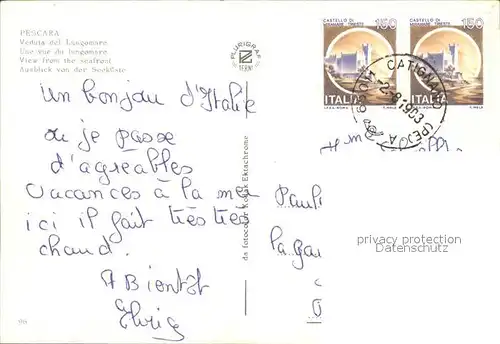 PESCARA
Veduta del Lungomare
Une vue du lungomare
View from the seafront
Ausblick von der Seeküste
PLURIGRAF
TERNI
CASTELLO DI
MIRAMARE TRIESTE
150
ITALIA
CASTELLO DI
MIRAMARE TRIESTE
150
ITALIA
CATIGNANO (PESCARA)
-2-8.1983
un bonjour d'Italie
ou je passe
d'agreables
vacances à la mer
ici il fait très très
chaud.
A Bientôt
da fotocolor Kodak Ektachrome
privacy protection
Datenschutz
96